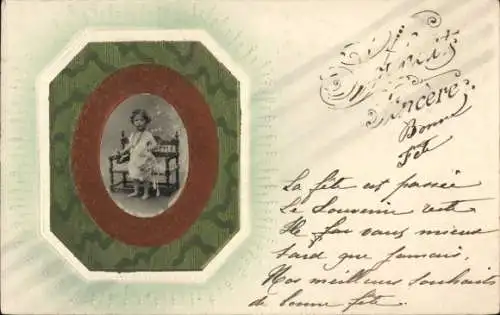 Amitié
Sincère
Bonne
Fête
La fête est passée
Le Souvenir reste
Ne fau vaus mieux
tard que jamais,
Nos meilleurs souhaits
de bonne fête.